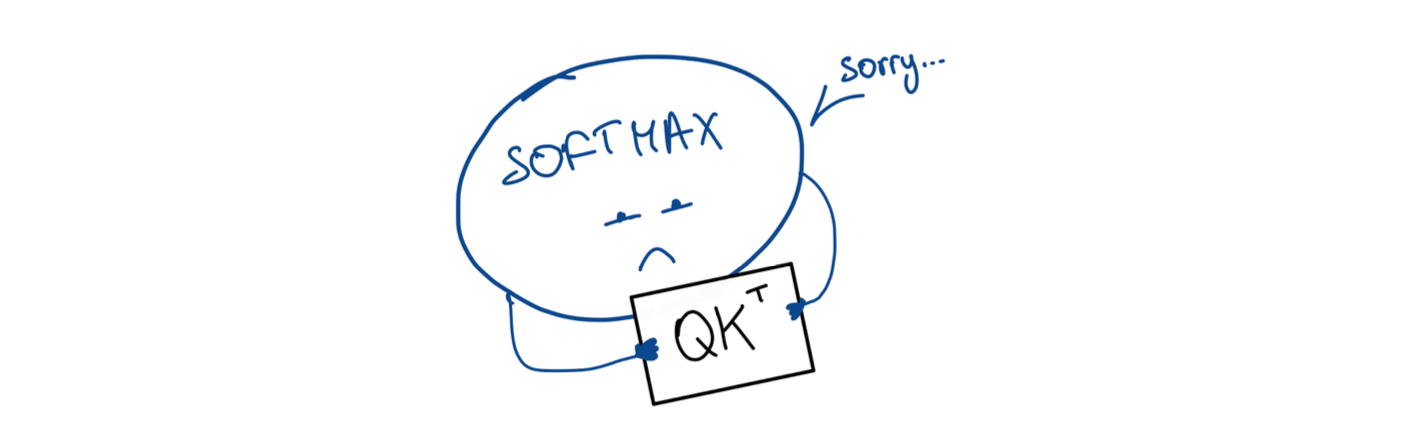 sorry...
SOFTMAX
QKᵀ